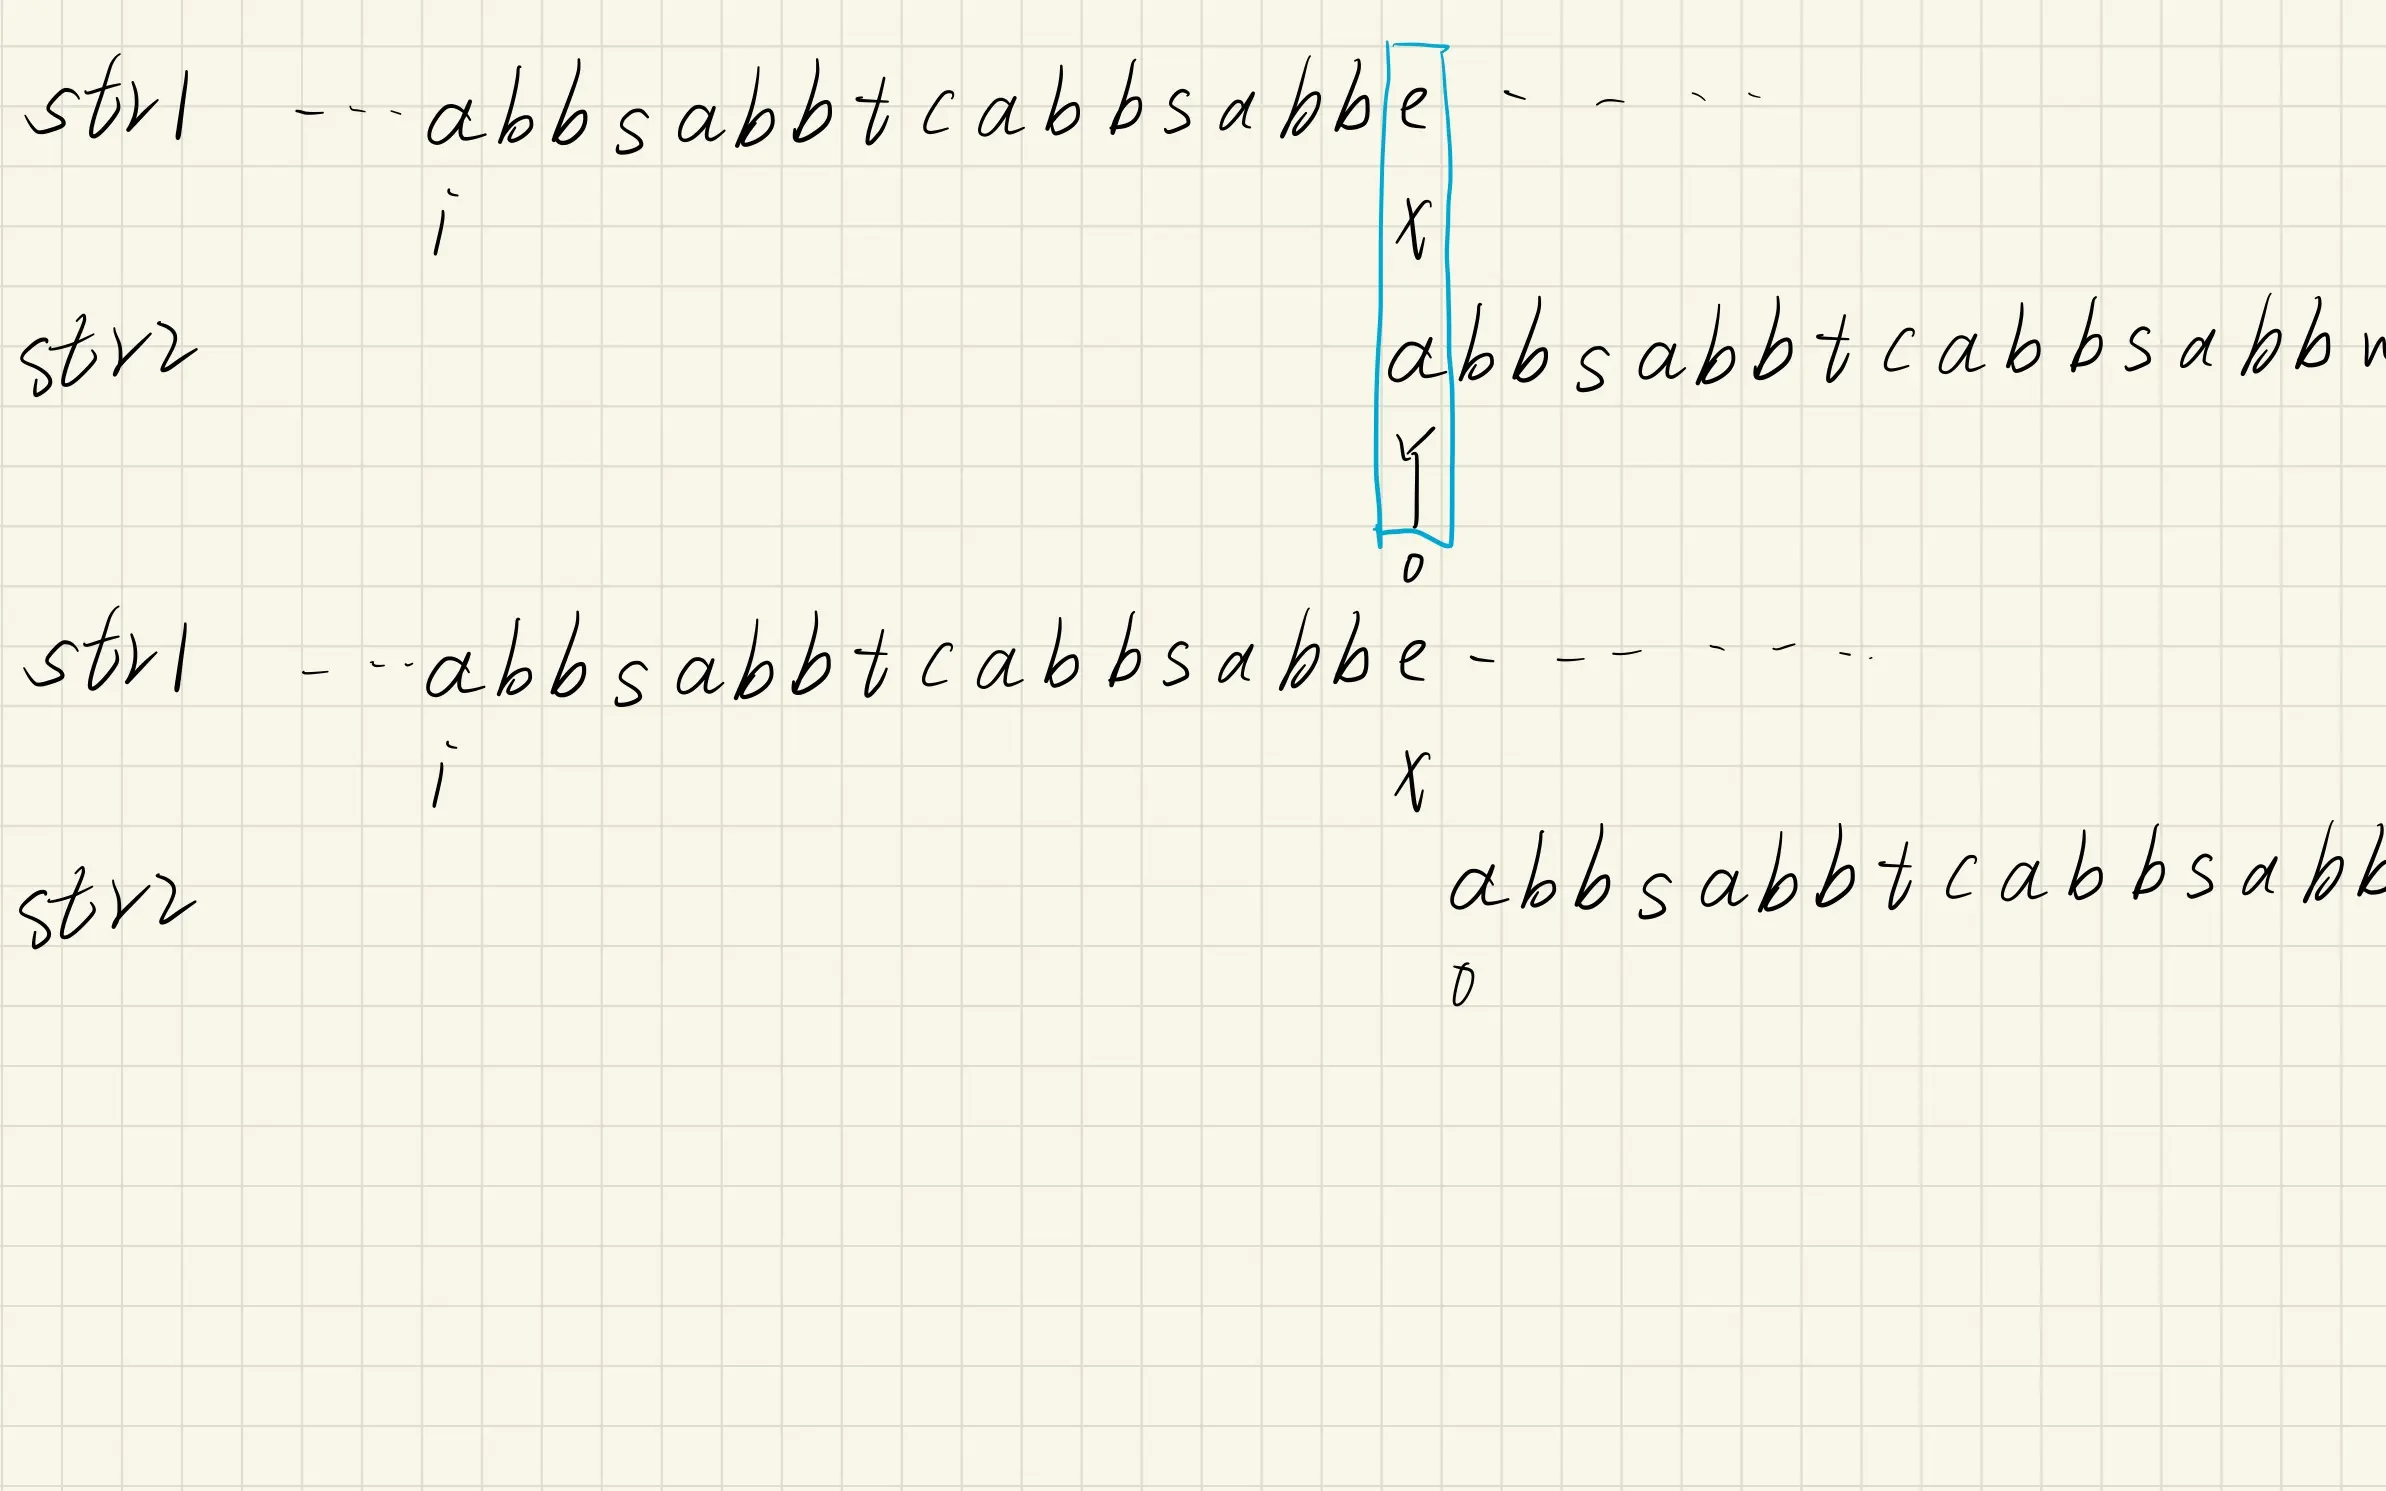 str1 --- abbsabbtcabbsabbe - - - -
i x
str2 abbsabbtcabbsabb
Y
0
str1 --- abbsabbtcabbsabbe - - - - - -
i x
str2 abbsabbtcabbsabb
0